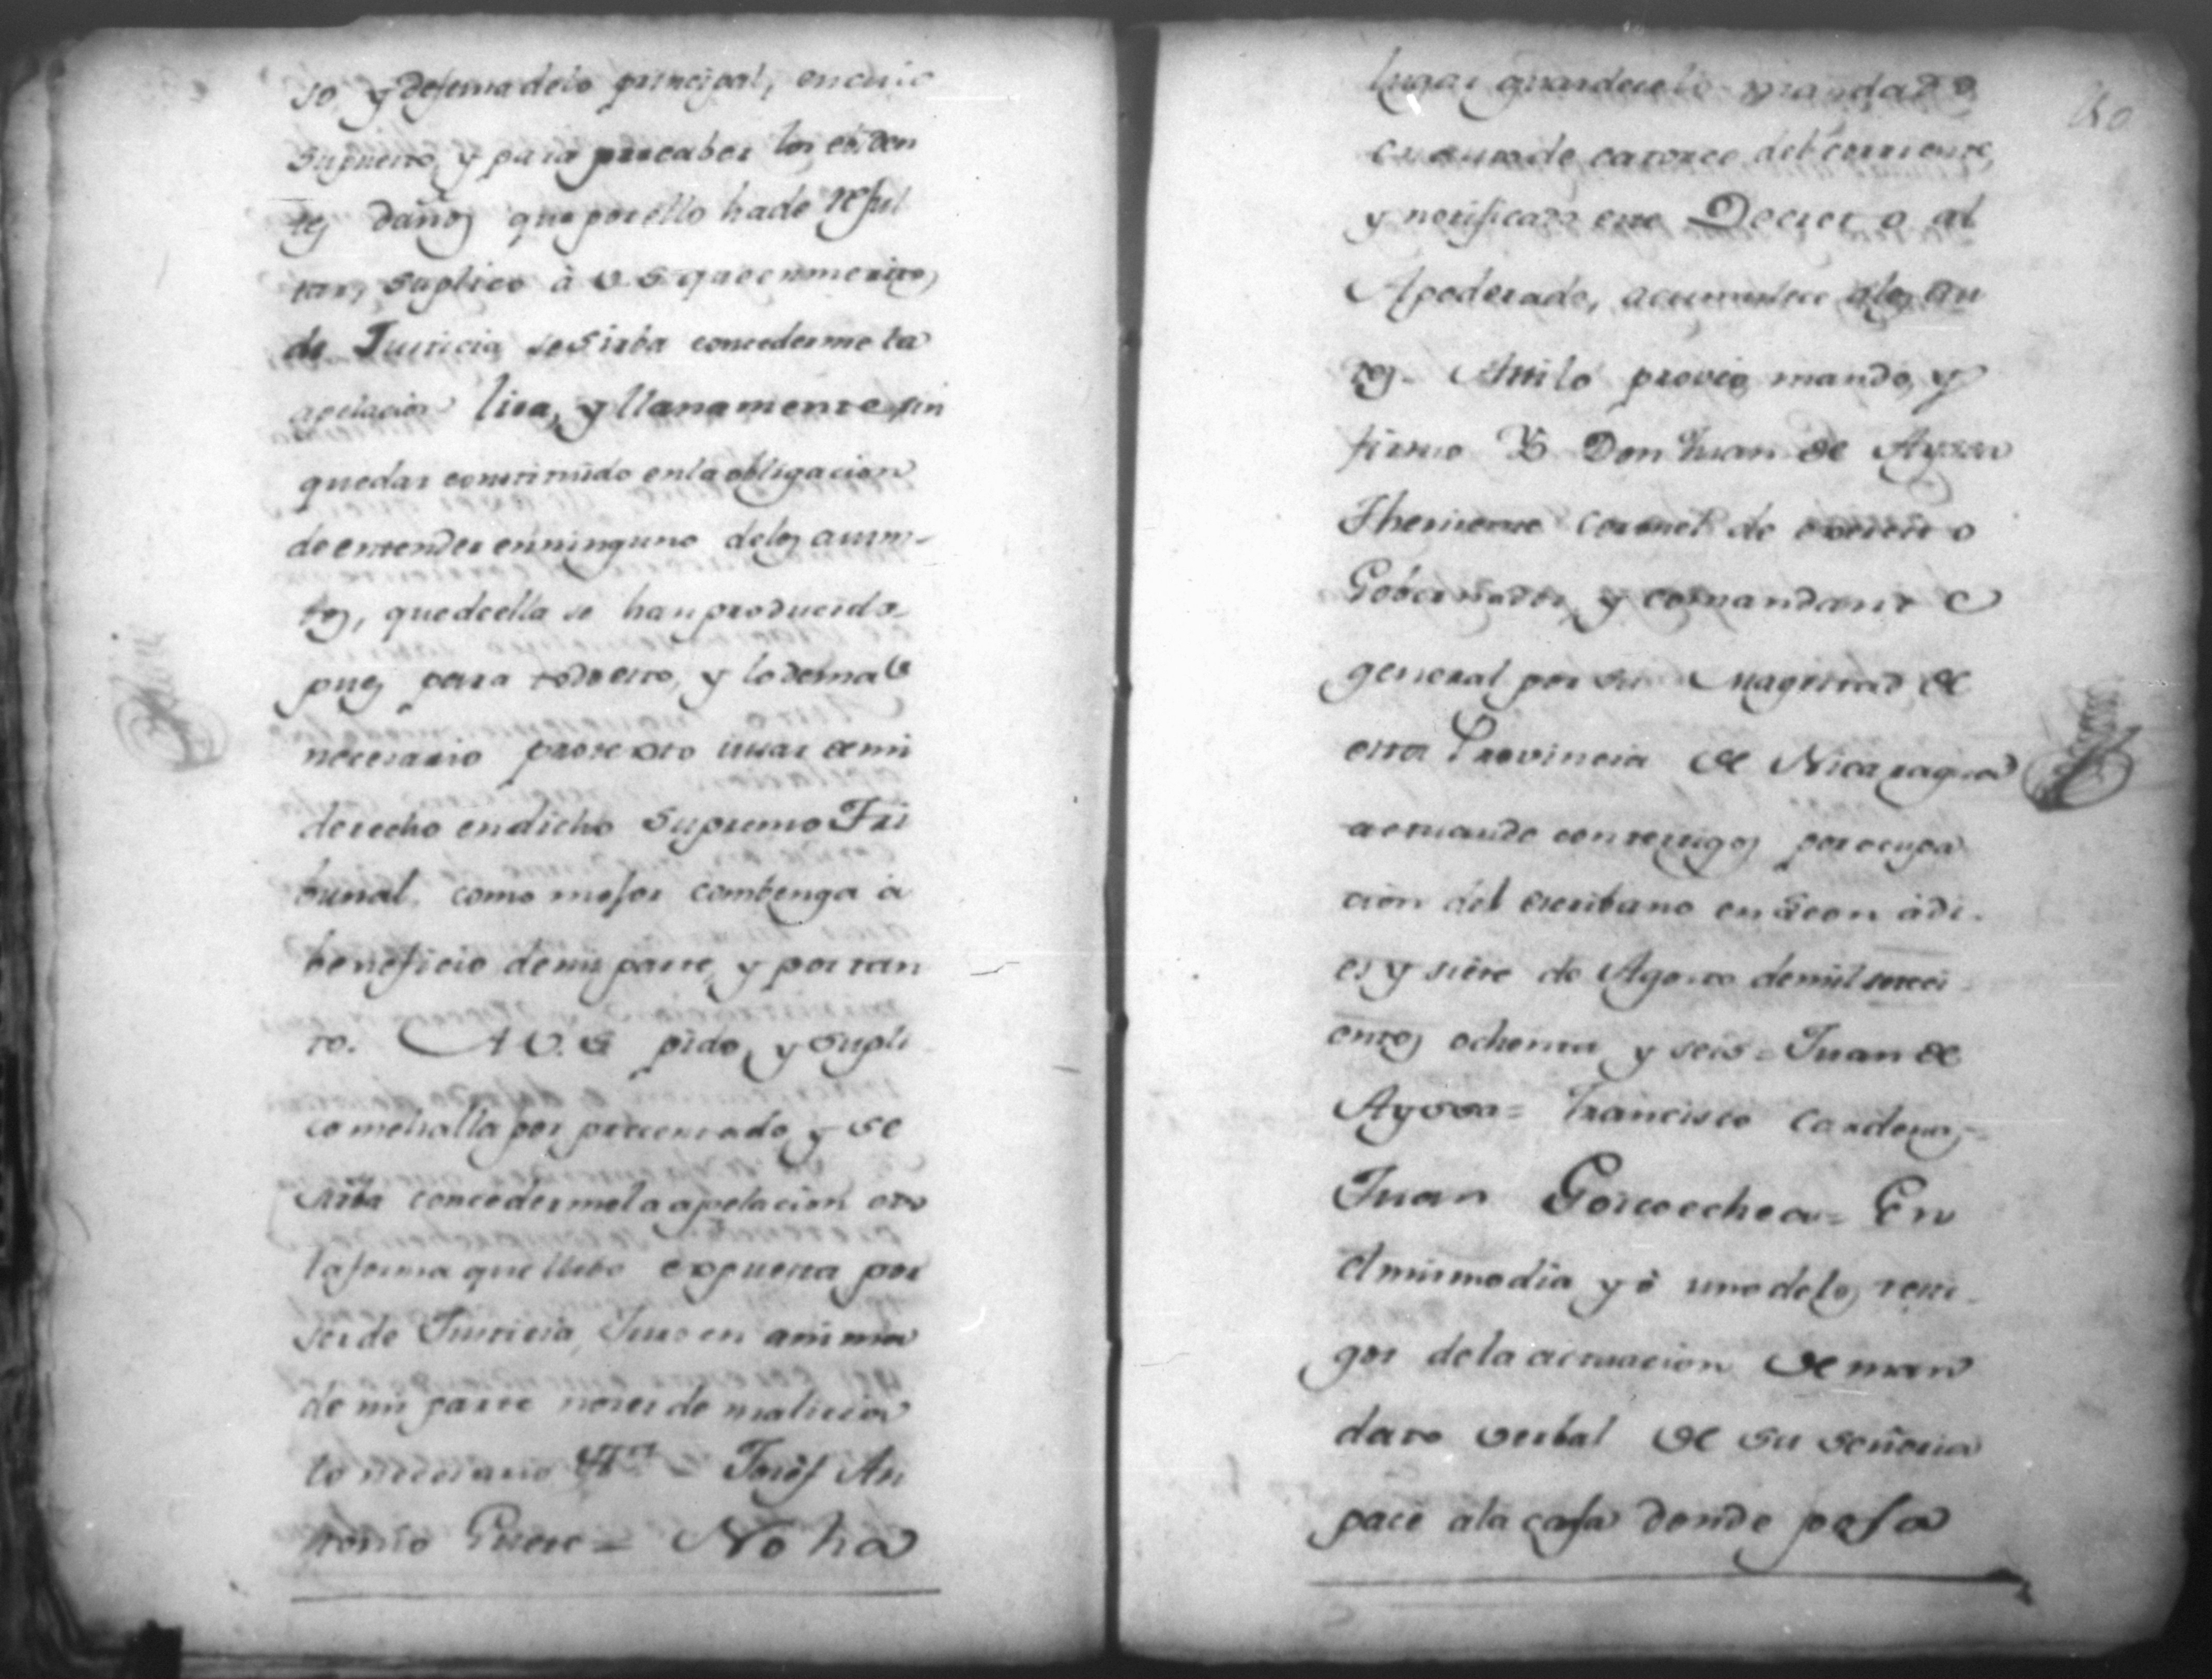 so, y defensa delo principal, en cuio
supuesto, y para precaber los ebiden
tes daños que por ello ha de resul
tar, suplico à V. S. que en meritos
de Justicia se sirba concederme la
apelacion lisa, y llanamente sin
quedar constituido en la obligacion
de entender en ninguno delos asum-
tos, que de ella se han producido
pues para todo esto, y lo demas
necesario protexto usar de mi
derecho en dicho Supremo Tri
bunal como mejor combenga à
beneficio de mi parte, y por tan
to. A V. S. pido, y supli
co me halla por presentado, y se
sirba concederme la apelacion en
la forma que llebo expuesta por
ser de Justicia, Juro en anima
de mi parte no ser de malicia
lo necesario &ra = Josef An
tonio = No ha
lugar guardese lo mandado
en auto de catorce del corriente,
y notificado este Decreto al
Apoderado, acumulese alos au
tos. Assi lo proveo, mando, y
firmo Yo Don Juan de Ayssa
Theniente Coronel de exercito
Gobernador, y comandante
general por su Magestad de
esta Provincia de Nicaragua
actuando con testigos por ocupa
cion del escribano en Leon à di-
es y siete de Agosto de mil seteci
entos ochenta y seis = Juan de
Ayssa = Francisco Cardenas =
Juan Goicoechea = En
el mismo dia yò uno delos testi-
gos dela actuacion de man
dato verbal de su señoria
pacè ala casa donde posa